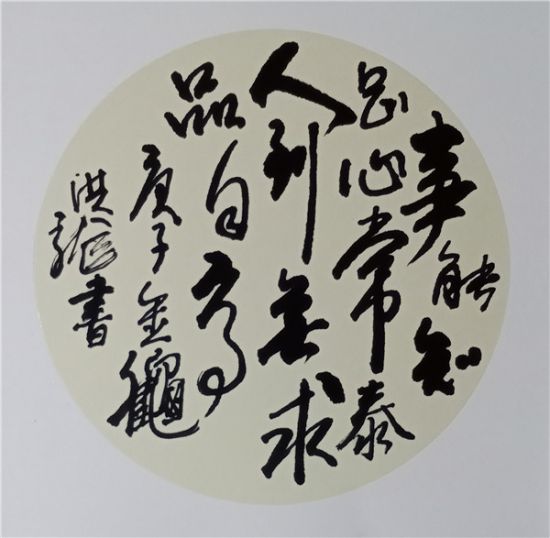 事能知
足心常泰
人到无求
品自高
庚子金秋
洪龙书